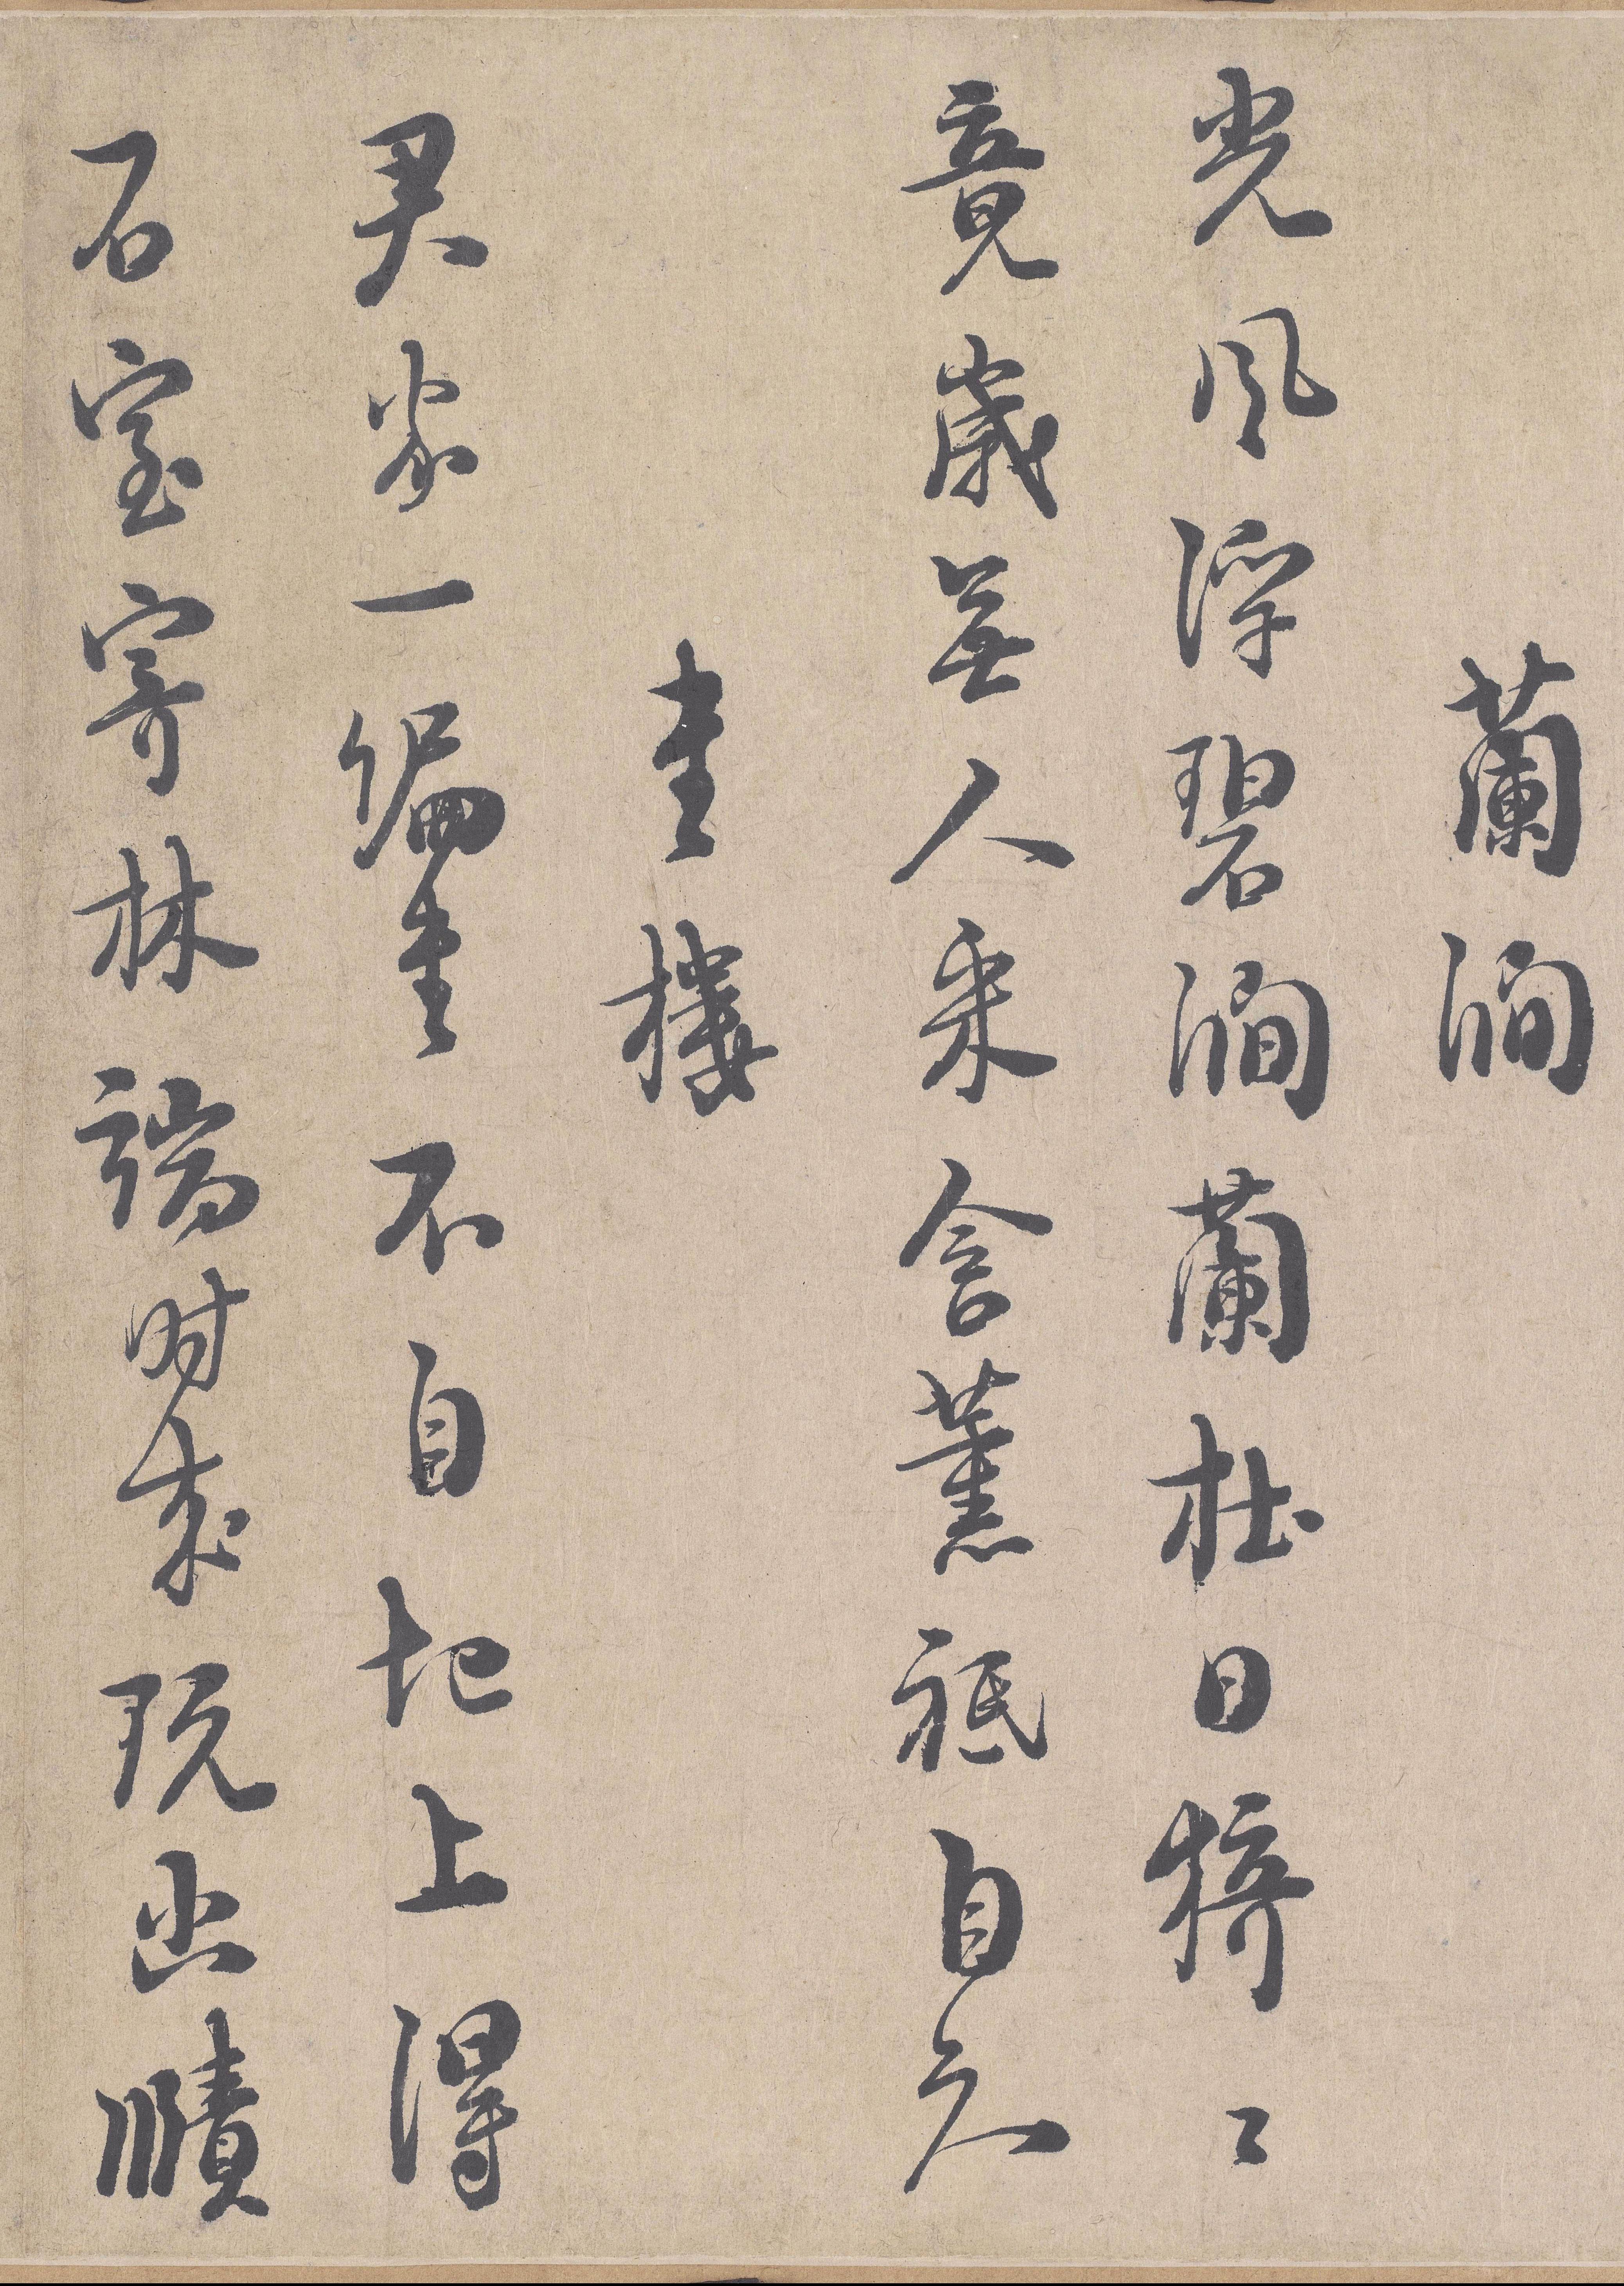 蘭澗
光風浮碧澗蘭杜日猗〻
竟歲無人采含薰秖自知
書樓
君家一編書不自圯上得
石室寄林端時來玩幽賾